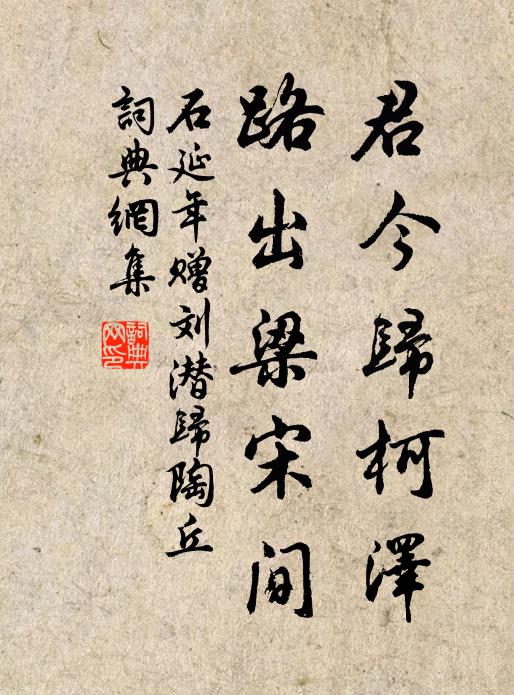 君今歸柯澤
路出梁宋间
石延年赠刘潜歸陶丘
詞典網集
詞典網印